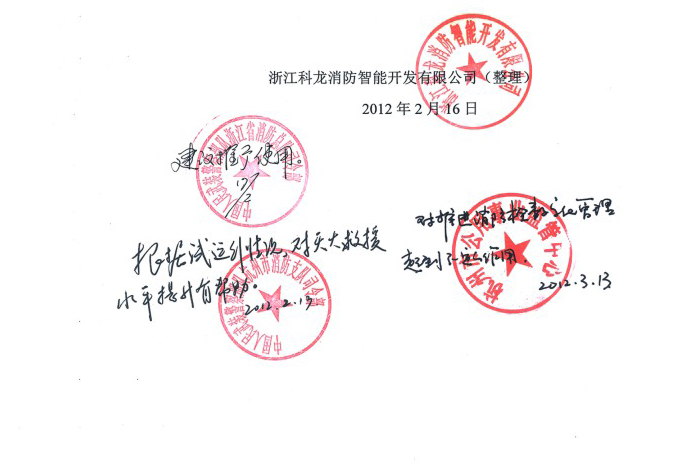 浙江科龙消防智能开发有限公司（整理）
2012 年 2 月 16 日
浙江科龙消防智能开发有限公司
建议推广使用。
中国人民武装警察部队浙江省消防总队司令部
根据试运行情况，对灭火救援
水平提升有帮助。
2012.2.13
中国人民武装警察部队杭州市消防支队司令部
对推进消防栓数字化管理
起到了一定作用。
2012.3.13
杭州市公用事业监管中心